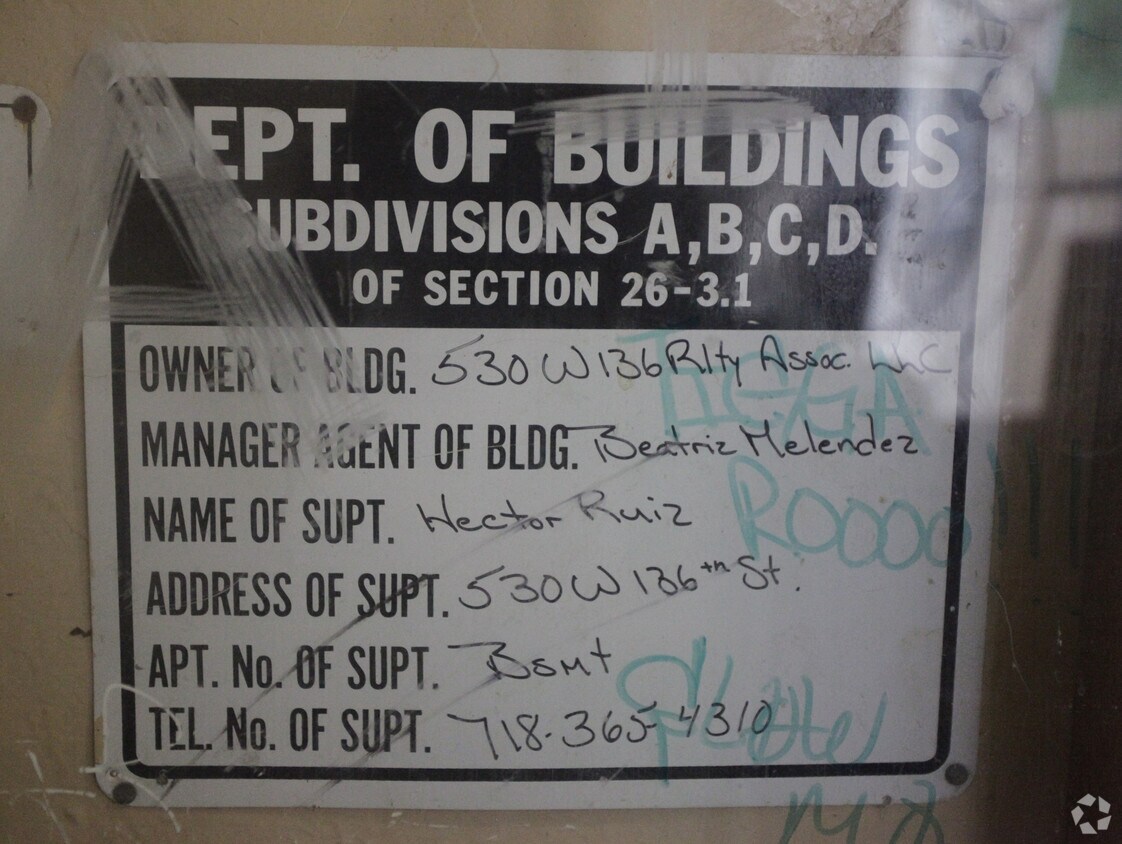 DEPT. OF BUILDINGS
SUBDIVISIONS A,B,C,D.
OF SECTION 26-3.1
OWNER OF BLDG. 530 W 136 Rlty Assoc. LLC
MANAGER AGENT OF BLDG. Beatriz Melendez
NAME OF SUPT. Hector Ruiz
ROOOO
ADDRESS OF SUPT. 530 W 136th St.
APT. No. OF SUPT. Bsmt
TEL. No. OF SUPT. 718-365-4310